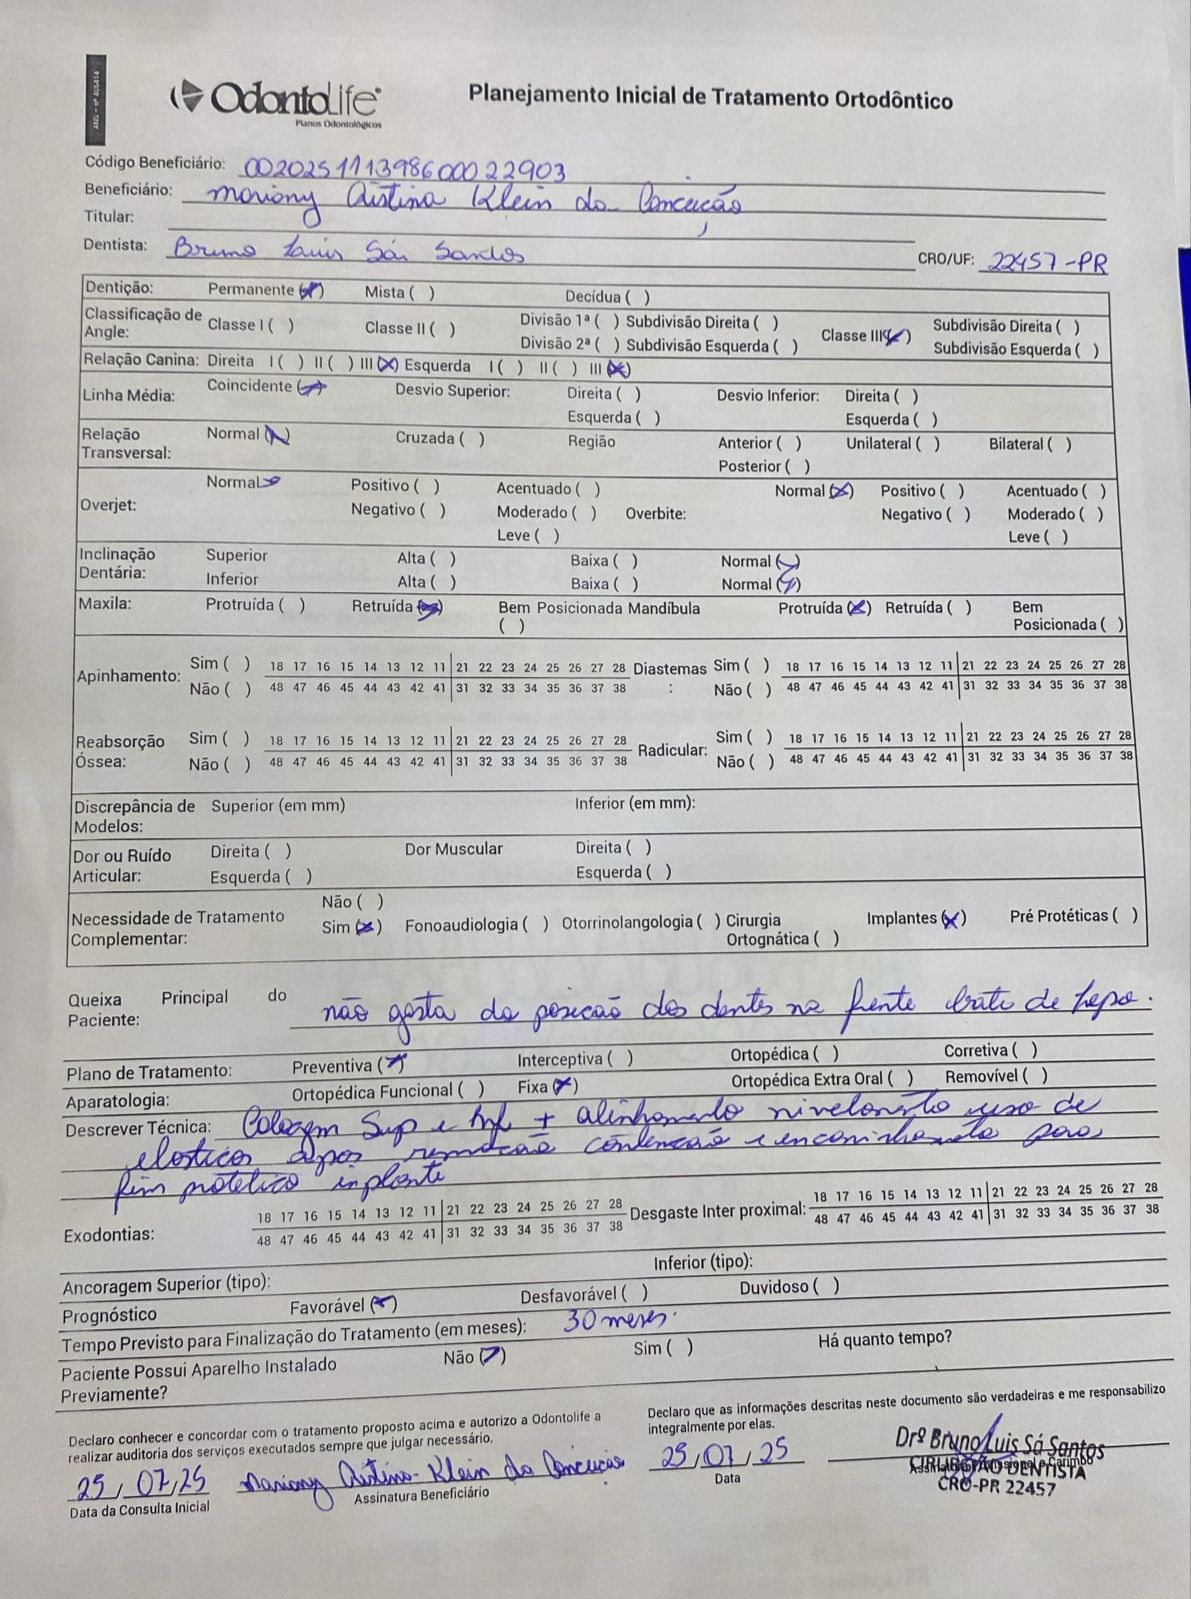 ANS - nº 406414
OdontoLife®
Planos Odontológicos
Planejamento Inicial de Tratamento Ortodôntico
Código Beneficiário: 00202511139860002 2903
Beneficiário: Mariany Cristina Klein da Conceição
Titular:
Dentista: Bruno Luis Sá Santos CRO/UF: 22457-PR
Dentição: Permanente (x) Mista ( ) Decídua ( )
Classificação de Angle: Classe I ( ) Classe II ( ) Divisão 1ª ( ) Subdivisão Direita ( ) Classe III (x) Subdivisão Direita ( )
Divisão 2ª ( ) Subdivisão Esquerda ( ) Subdivisão Esquerda ( )
Relação Canina: Direita I ( ) II ( ) III (x) Esquerda I ( ) II ( ) III (x)
Linha Média: Coincidente (x) Desvio Superior: Direita ( ) Desvio Inferior: Direita ( )
Esquerda ( ) Esquerda ( )
Relação Transversal: Normal (x) Cruzada ( ) Região Anterior ( ) Unilateral ( ) Bilateral ( )
Posterior ( )
Overjet: Normal (x) Positivo ( ) Acentuado ( ) Overbite: Normal (x) Positivo ( ) Acentuado ( )
Negativo ( ) Moderado ( ) Negativo ( ) Moderado ( )
Leve ( ) Leve ( )
Inclinação Dentária: Superior Alta ( ) Baixa ( ) Normal (x)
Inferior Alta ( ) Baixa ( ) Normal (x)
Maxila: Protruída ( ) Retruída (x) Bem Posicionada ( ) Mandíbula Protruída (x) Retruída ( ) Bem Posicionada ( )
Apinhamento: Sim ( ) 18 17 16 15 14 13 12 11 21 22 23 24 25 26 27 28 Diastemas: Sim ( ) 18 17 16 15 14 13 12 11 21 22 23 24 25 26 27 28
Não ( ) 48 47 46 45 44 43 42 41 31 32 33 34 35 36 37 38 Não ( ) 48 47 46 45 44 43 42 41 31 32 33 34 35 36 37 38
Reabsorção Óssea: Sim ( ) 18 17 16 15 14 13 12 11 21 22 23 24 25 26 27 28 Radicular: Sim ( ) 18 17 16 15 14 13 12 11 21 22 23 24 25 26 27 28
Não ( ) 48 47 46 45 44 43 42 41 31 32 33 34 35 36 37 38 Não ( ) 48 47 46 45 44 43 42 41 31 32 33 34 35 36 37 38
Discrepância de Modelos: Superior (em mm) Inferior (em mm):
Dor ou Ruído Articular: Direita ( ) Dor Muscular Direita ( )
Esquerda ( ) Esquerda ( )
Necessidade de Tratamento Complementar: Não ( )
Sim (x) Fonoaudiologia ( ) Otorrinolangologia ( ) Cirurgia Ortognática ( ) Implantes (x) Pré Protéticas ( )
Queixa Principal do Paciente: não gosta da posição dos dentes na frente bate de topo.
Plano de Tratamento: Preventiva (x) Interceptiva ( ) Ortopédica ( ) Corretiva ( )
Aparatologia: Ortopédica Funcional ( ) Fixa (x) Ortopédica Extra Oral ( ) Removível ( )
Descrever Técnica: Colagem Sup e Inf + alinhamento nivelamento uso de
elasticos apos remoção contenção e encaminhamento para
fim protetico inplante
Exodontias: 18 17 16 15 14 13 12 11 21 22 23 24 25 26 27 28 Desgaste Inter proximal: 18 17 16 15 14 13 12 11 21 22 23 24 25 26 27 28
48 47 46 45 44 43 42 41 31 32 33 34 35 36 37 38 48 47 46 45 44 43 42 41 31 32 33 34 35 36 37 38
Ancoragem Superior (tipo): Inferior (tipo):
Prognóstico Favorável (x) Desfavorável ( ) Duvidoso ( )
Tempo Previsto para Finalização do Tratamento (em meses): 30 meses.
Paciente Possui Aparelho Instalado Previamente? Não (x) Sim ( ) Há quanto tempo?
Declaro conhecer e concordar com o tratamento proposto acima e autorizo a Odontolife a
realizar auditoria dos serviços executados sempre que julgar necessário.
25/07/25 Mariany Cristina Klein da Conceição
Data da Consulta Inicial Assinatura Beneficiário
Declaro que as informações descritas neste documento são verdadeiras e me responsabilizo
integralmente por elas.
25/07/25
Data
Assinatura Profissional e Carimbo
Drº Bruno Luis Sá Santos
CIRURGIÃO DENTISTA
CRO-PR 22457